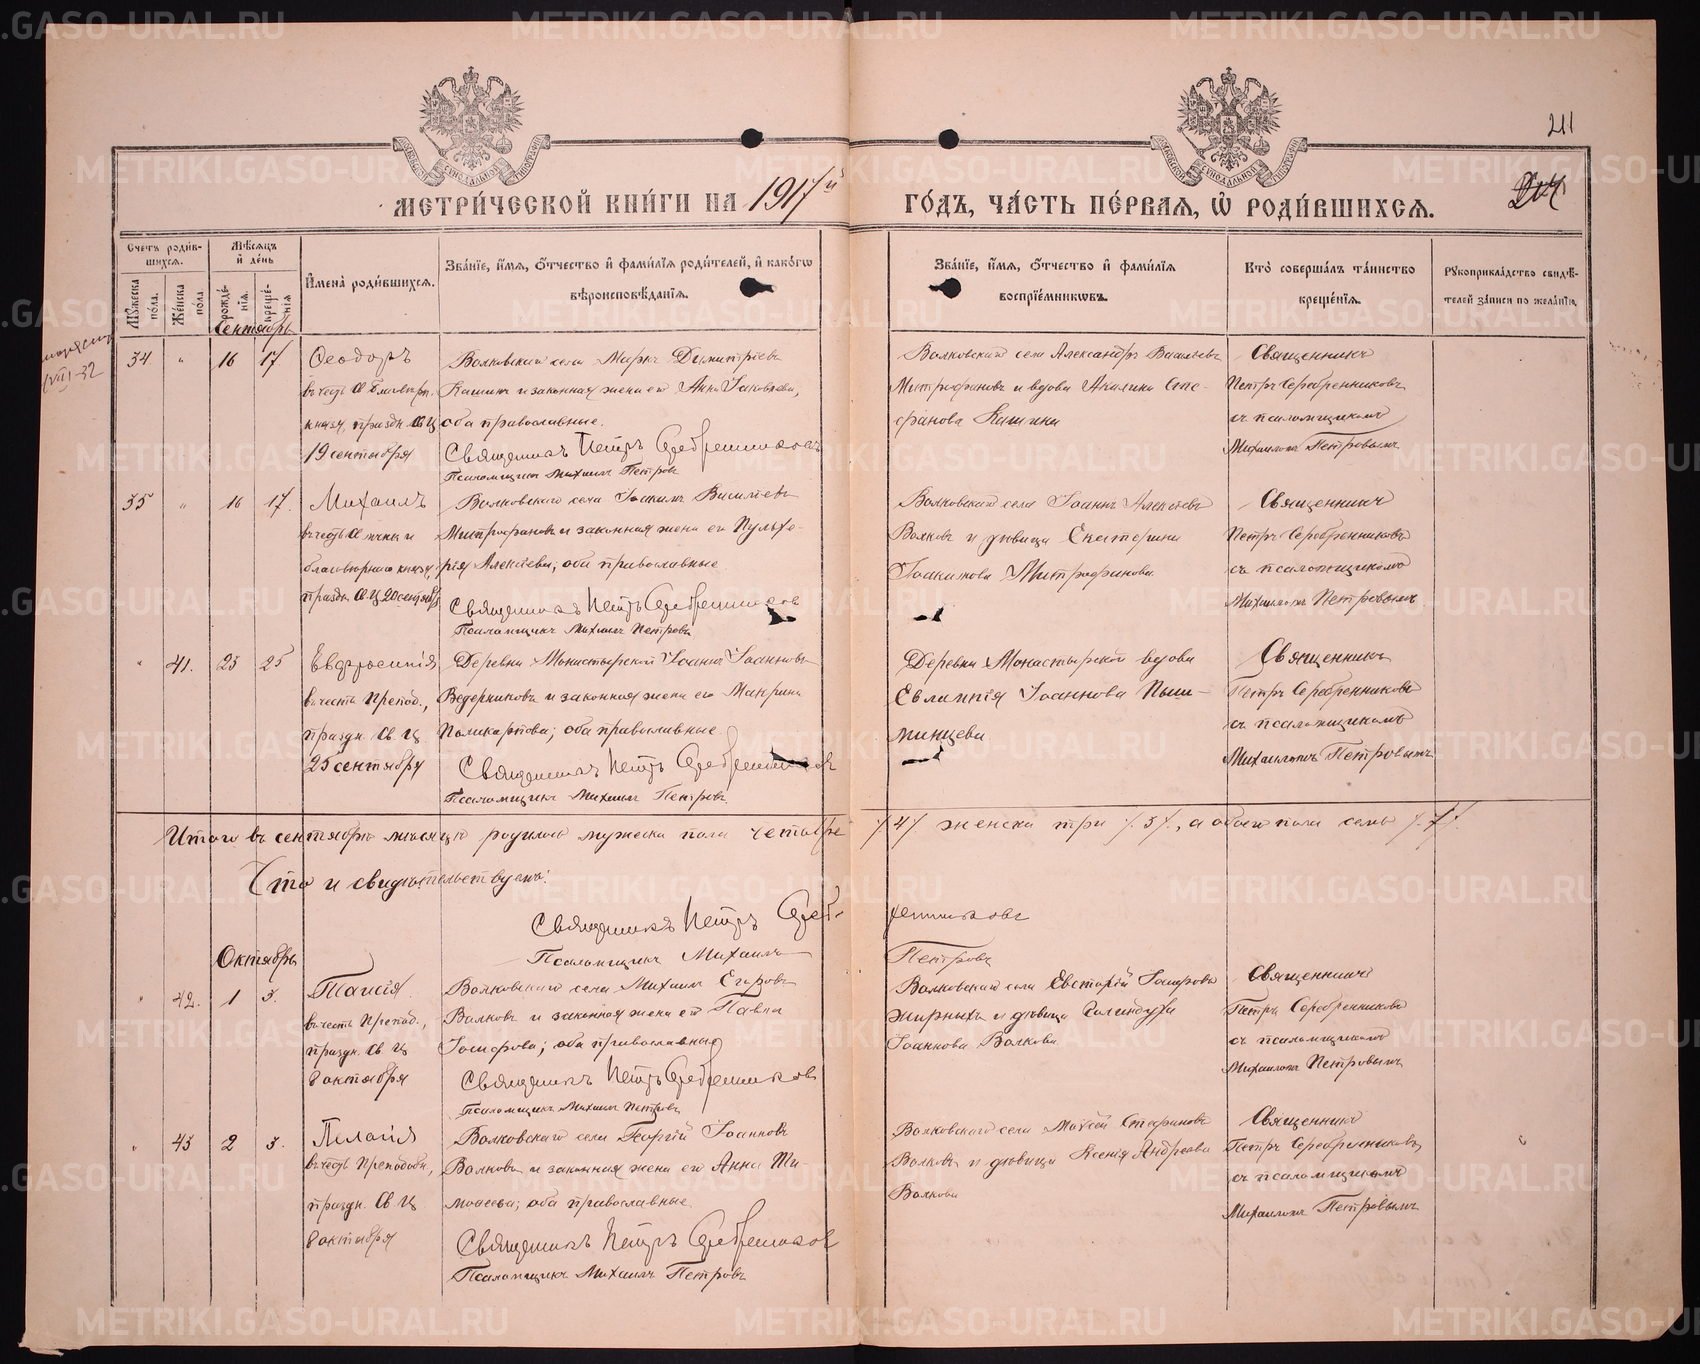 211
МЕТРИ́ЧЕСКОЙ КНИ́ГИ НА 1917й ГО́ДЪ, ЧА́СТЬ ПЕ́РВАЯ, Ѡ РОДИ́ВШИХСЯ.
Счетъ роди́вшихся.
Мѣсяцъ и де́нь
Мꙋжеска по́ла.
Же́нска по́ла
рожде́нія.
креще́нія
И҆мена̀ роди́вшихся.
Зва́ніе, и҆мя, ѻ҆́тчество и҆ фами́лія роди́телей, и҆ како́гѡ вѣроисповѣ́данія.
Зва́ніе, и҆мя, ѻ҆́тчество и҆ фами́лія воспрїе́мниковъ.
Кто̀ соверша́лъ та́инство креще́нія.
Рꙋкоприкла́дство свидѣ́телей за́писи по жела́нію.
Сентябрь
34 " 16 17.
Ѳеодоръ
въ честь Св. Благовѣрн.
князя, праздн. Св. Ц
19 сентября
Волковскаго села Маркъ Димитріевъ
Кашинъ и законная жена его Анна Іаковлева,
оба православные.
Священникъ Петръ Серебренниковъ
Псаломщикъ Михаилъ Петровъ
Волковскаго села Александръ Васильевъ
Митрофановъ и вдова Акилина Сте-
фанова Кашина
Священникъ
Петръ Серебренниковъ
съ псаломщикомъ
Михаиломъ Петровымъ
35 " 16 17.
Михаилъ
въ честь Св. мчка и
благовѣрнаго князя,
праздн. Св. Ц 20 сентября
Волковскаго села Іоакимъ Васильевъ
Митрофановъ и законная жена его Пульхе-
рія Алексѣева, оба православные
Священникъ Петръ Серебренниковъ
Псаломщикъ Михаилъ Петровъ
Волковскаго села Іоаннъ Алексѣевъ
Волковъ и дѣвица Екатерина
Іоакимова Митрофанова
Священникъ
Петръ Серебренниковъ
съ псаломщикомъ
Михаиломъ Петровымъ
" 41. 23 25
Евфросинія
въ честь Препод.,
праздн. Св. Ц.
25 сентября
Деревни Монастырской Іоаннъ Іоанновъ
Ведерниковъ и законная жена его Макрина
Поликарпова; оба православные
Священникъ Петръ Серебренниковъ
Псаломщикъ Михаилъ Петровъ
Деревни Монастырской вдова
Евлампія Іоаннова Пыш-
минцева
Священникъ
Петръ Серебренниковъ
съ псаломщикомъ
Михаиломъ Петровымъ
Итого въ сентябрѣ мѣсяцѣ родилось мужеска пола четыре /.4/. женска три /.3/., а обоего пола семь /.7/.
Что и свидѣтельствуемъ:
Священникъ Петръ Сереб-
ренниковъ
Псаломщикъ Михаилъ
Петровъ
Октябрь
" 42. 1 3.
Таисія
въ честь Препод.,
праздн. Св. Ц
8 октября
Волковскаго села Михаилъ Егоровъ
Волковъ и законная жена его Павла
Іосифова; оба православные
Священникъ Петръ Серебренниковъ
Псаломщикъ Михаилъ Петровъ
Жирныхъ и дѣвица Голиндуха
Іоаннова Волкова
Священникъ
Петръ Серебренниковъ
съ псаломщикомъ
Михаиломъ Петровымъ
" 43 2 3.
Пелагія
въ честь Преподобн,
праздн. Св. Ц.
8 октября
Волковскаго села Георгій Іоанновъ
Волковъ и законная жена его Анна Ти-
моѳеева; оба православные
Священникъ Петръ Серебренниковъ
Псаломщикъ Михаилъ Петровъ
Волковскаго села Моисей Стефановъ
Волковъ и дѣвица Ксенія Андреева
Волкова
Священникъ
Петръ Серебренниковъ
съ псаломщикомъ
Михаиломъ Петровымъ
METRIKI.GASO-URAL.RU